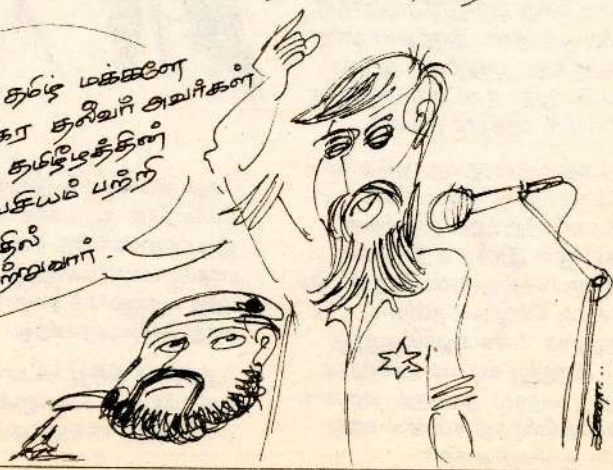 தமிழ் மக்களே
கர தலைவர் அவர்கள்
தமிழீழத்தின்
பசியம் பற்றி
தில்
ற்றுவார்.